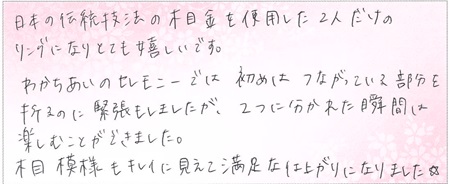 日本の伝統技法の木目金を使用した2人だけの
リングになりとても嬉しいです。
わかちあいのセレモニーでは 初めは つながっている部分を
折るのに緊張もしましたが、2つに分かれた瞬間は
楽しむことができました。
木目 模様もキレイに見えて満足な仕上がりになりました☆